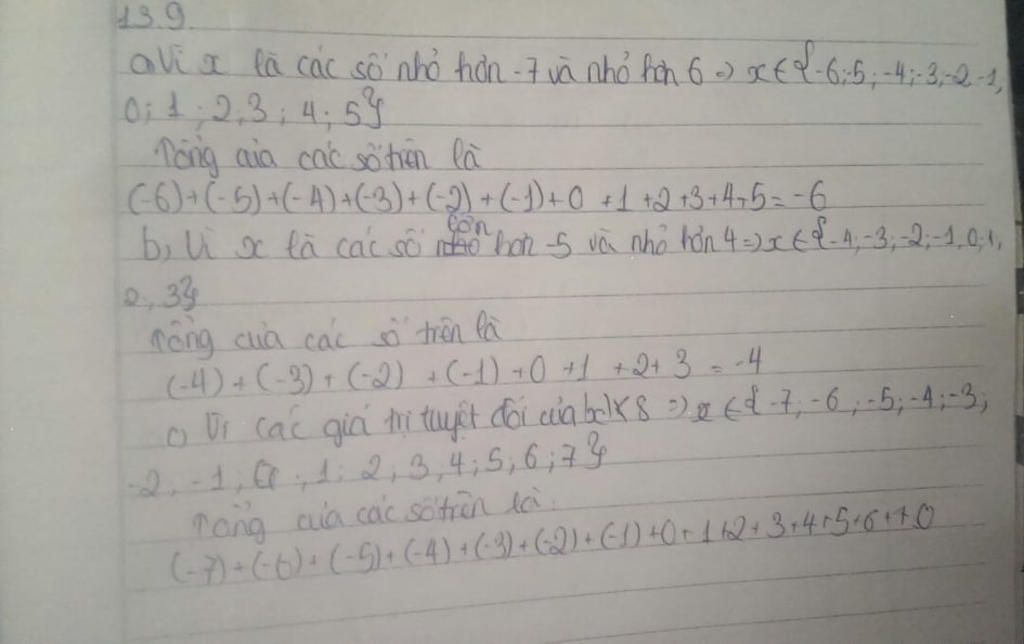 13.9
a, Vì x là các số nhỏ hơn -7 và nhỏ hơn 6 => x ∈ {-6;-5;-4;-3;-2-1,
0; 1; 2; 3; 4; 5}
Tổng của các số trên là
(-6)+(-5)+(-4)+(-3)+(-2)+(-1)+0 +1 +2+3+4+5=-6
b, Vì x là các số lớn hơn -5 và nhỏ hơn 4 => x ∈ {-4;-3;-2;-1,0;1,
2, 3}
Tổng của các số trên là
(-4) + (-3) + (-2) + (-1) +0 +1 +2+3 = -4
c) Vì các giá trị tuyệt đối của |x| < 8 => x ∈ {-7; -6; -5; -4; -3;
-2; -1; 0; 1; 2; 3; 4; 5; 6; 7}
Tổng của các số trên là:
(-7)+(-6)+(-5)+(-4)+(-3)+(-2)+(-1)+0+1+2+3+4+5+6+